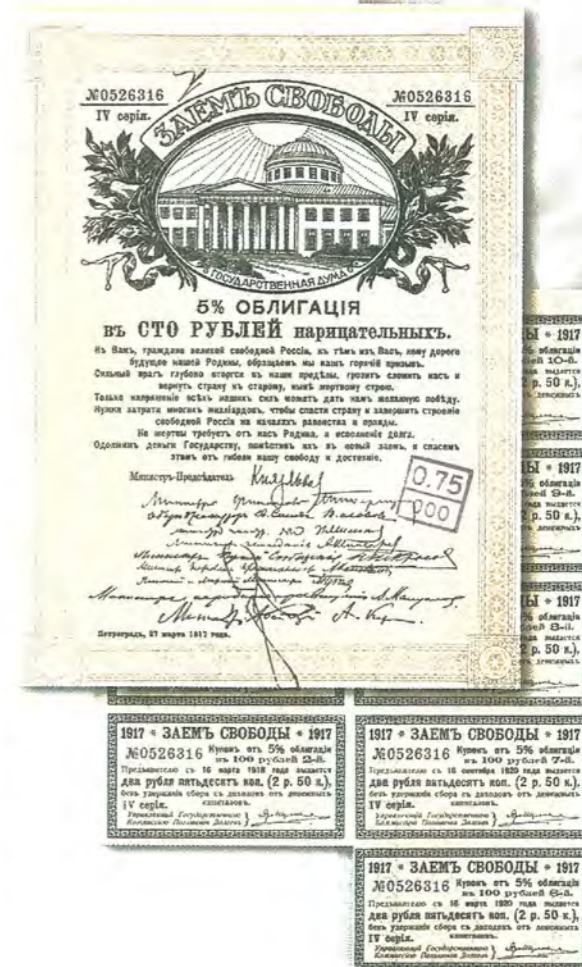 №0526316
IV серія.
ЗАЕМЪ СВОБОДЫ
№0526316
IV серія.
ГОСУДАРСТВЕННАЯ ДУМА
5% ОБЛИГАЦІЯ
въ СТО РУБЛЕЙ нарицательныхъ.
Къ Вамъ, граждане великой свободной Россіи, къ тѣмъ изъ Васъ, кому дорого
будущее нашей Родины, обращаемъ мы нашъ горячій призывъ.
Сильный врагъ глубоко вторгся въ наши предѣлы, грозитъ сломить насъ и
вернуть страну къ старому, нынѣ мертвому строю.
Только напряженіе всѣхъ нашихъ силъ можетъ дать намъ желанную побѣду.
Нужна затрата многихъ милліардовъ, чтобы спасти страну и завершить строеніе
свободной Россіи на началахъ равенства и правды.
Не жертвы требуетъ отъ насъ Родина, а исполненія долга.
Одолжимъ деньги Государству, помѣстивъ ихъ въ новый заемъ, и спасемъ
этимъ отъ гибели нашу свободу и достояніе.
Министръ-Предсѣдатель Кн. Львов
0.75
000
Петроградъ, 27 марта 1917 года.
Ы * 1917
% облигація
лей 10-й.
2 р. 50 к.),
Ы * 1917
% облигація
лей 9-й.
2 р. 50 к.),
Ы * 1917
% облигація
лей 8-й.
2 р. 50 к.),
1917 * ЗАЕМЪ СВОБОДЫ * 1917
№0526316 Купонъ отъ 5% облигаціи
въ 100 рублей 2-й.
Предъявителю съ 16 марта 1918 года выдается
два рубля пятьдесятъ коп. (2 р. 50 к.),
безъ удержанія сбора съ доходовъ отъ денежныхъ
IV серія. капиталовъ.
Управляющій Государственною
Коммиссіею Погашенія Долговъ
1917 * ЗАЕМЪ СВОБОДЫ * 1917
№0526316 Купонъ отъ 5% облигаціи
въ 100 рублей 7-й.
Предъявителю съ 16 сентября 1920 года выдается
два рубля пятьдесятъ коп. (2 р. 50 к.),
безъ удержанія сбора съ доходовъ отъ денежныхъ
IV серія. капиталовъ.
Управляющій Государственною
Коммиссіею Погашенія Долговъ
1917 * ЗАЕМЪ СВОБОДЫ * 1917
№0526316 Купонъ отъ 5% облигаціи
въ 100 рублей 6-й.
Предъявителю съ 16 марта 1920 года выдается
два рубля пятьдесятъ коп. (2 р. 50 к.),
безъ удержанія сбора съ доходовъ отъ денежныхъ
IV серія. капиталовъ.
Управляющій Государственною
Коммиссіею Погашенія Долговъ